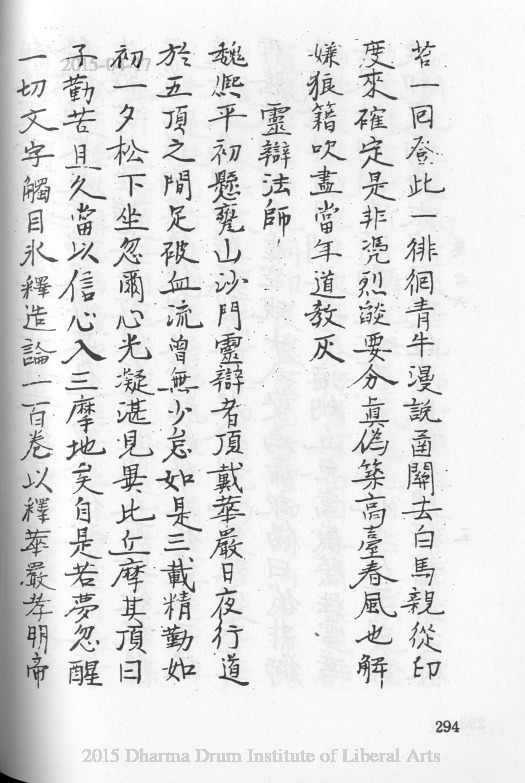 苔一回登此一徘徊青牛漫說函關去白馬親從印
度來確定是非凴烈燄要分眞偽築高臺春風也解
嫌狼籍吹盡當年道教灰
靈辯法師
魏熈平初懸甕山沙門靈辯者頂戴華嚴日夜行道
於五頂之間足破血流曾無少怠如是三載精勤如
初一夕松下坐忽爾心光凝湛見異比丘摩其頂曰
子勤苦且久當以信心入三摩地矣自是若夢忽醒
一切文字觸目氷釋造論一百卷以釋華嚴孝明帝
294
2015 Dharma Drum Institute of Liberal Arts